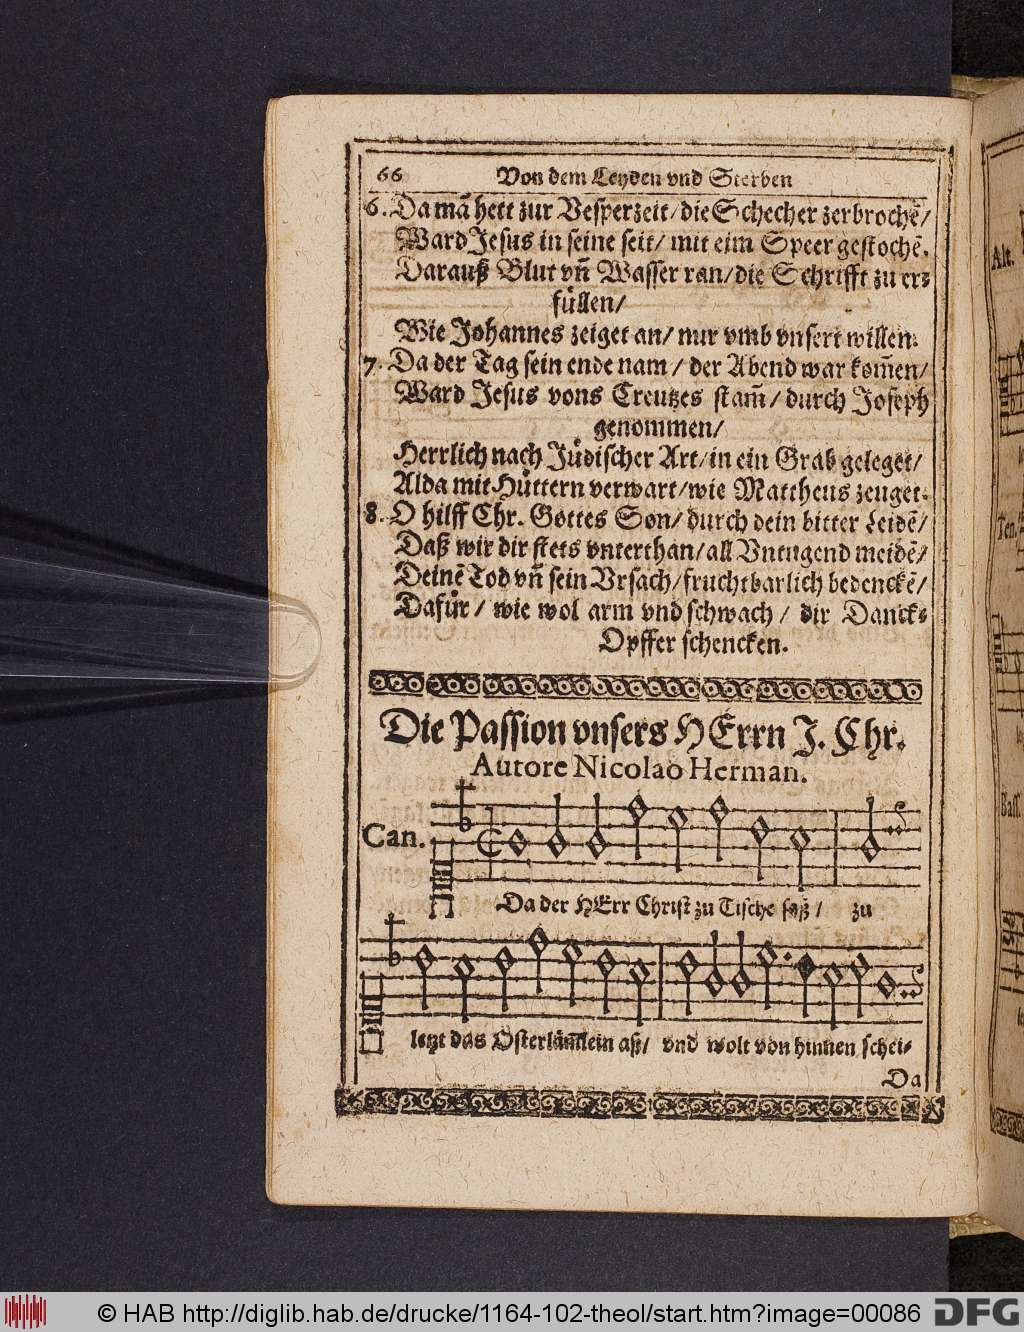 66 Von dem Leyden vnd Sterben
6. Da mã hett zur Vesperzeit/die Schecher zerbrochẽ/
Ward Jesus in seine seit/ mit eim Speer gestochẽ.
Darauß Blut vñ Wasser ran/die Schrifft zu er=
füllen/
Wie Johannes zeiget an/ nur vmb vnsert willen.
7. Da der Tag sein ende nam/ der Abend war kom̃en/
Ward Jesus vons Creutzes stam̃/ durch Joseph
genommen/
Herrlich nach Jüdischer Art/in ein Grab geleget/
Alda mit Hüttern verwart/wie Mattheus zeuget.
8. O hilff Chr. Gottes Son/ durch dein bitter Leidẽ/
Daß wir dir stets vnterthan/ all Vntugend meidẽ/
Deinẽ Tod vñ sein Vrsach/fruchtbarlich bedenckẽ/
Dafür/ wie wol arm vnd schwach/ dir Danck=
Opffer schencken.
Die Passion vnsers HErrn J. Chr.
Autore Nicolao Herman.
Can.
Da der HErr Christ zu Tische saß/ zu
letzt das Osterläm̃lein aß/ vnd wolt von hinnen schei=
Da
Alt.
Ten.
Bass.
© HAB http://diglib.hab.de/drucke/1164-102-theol/start.htm?image=00086 DFG